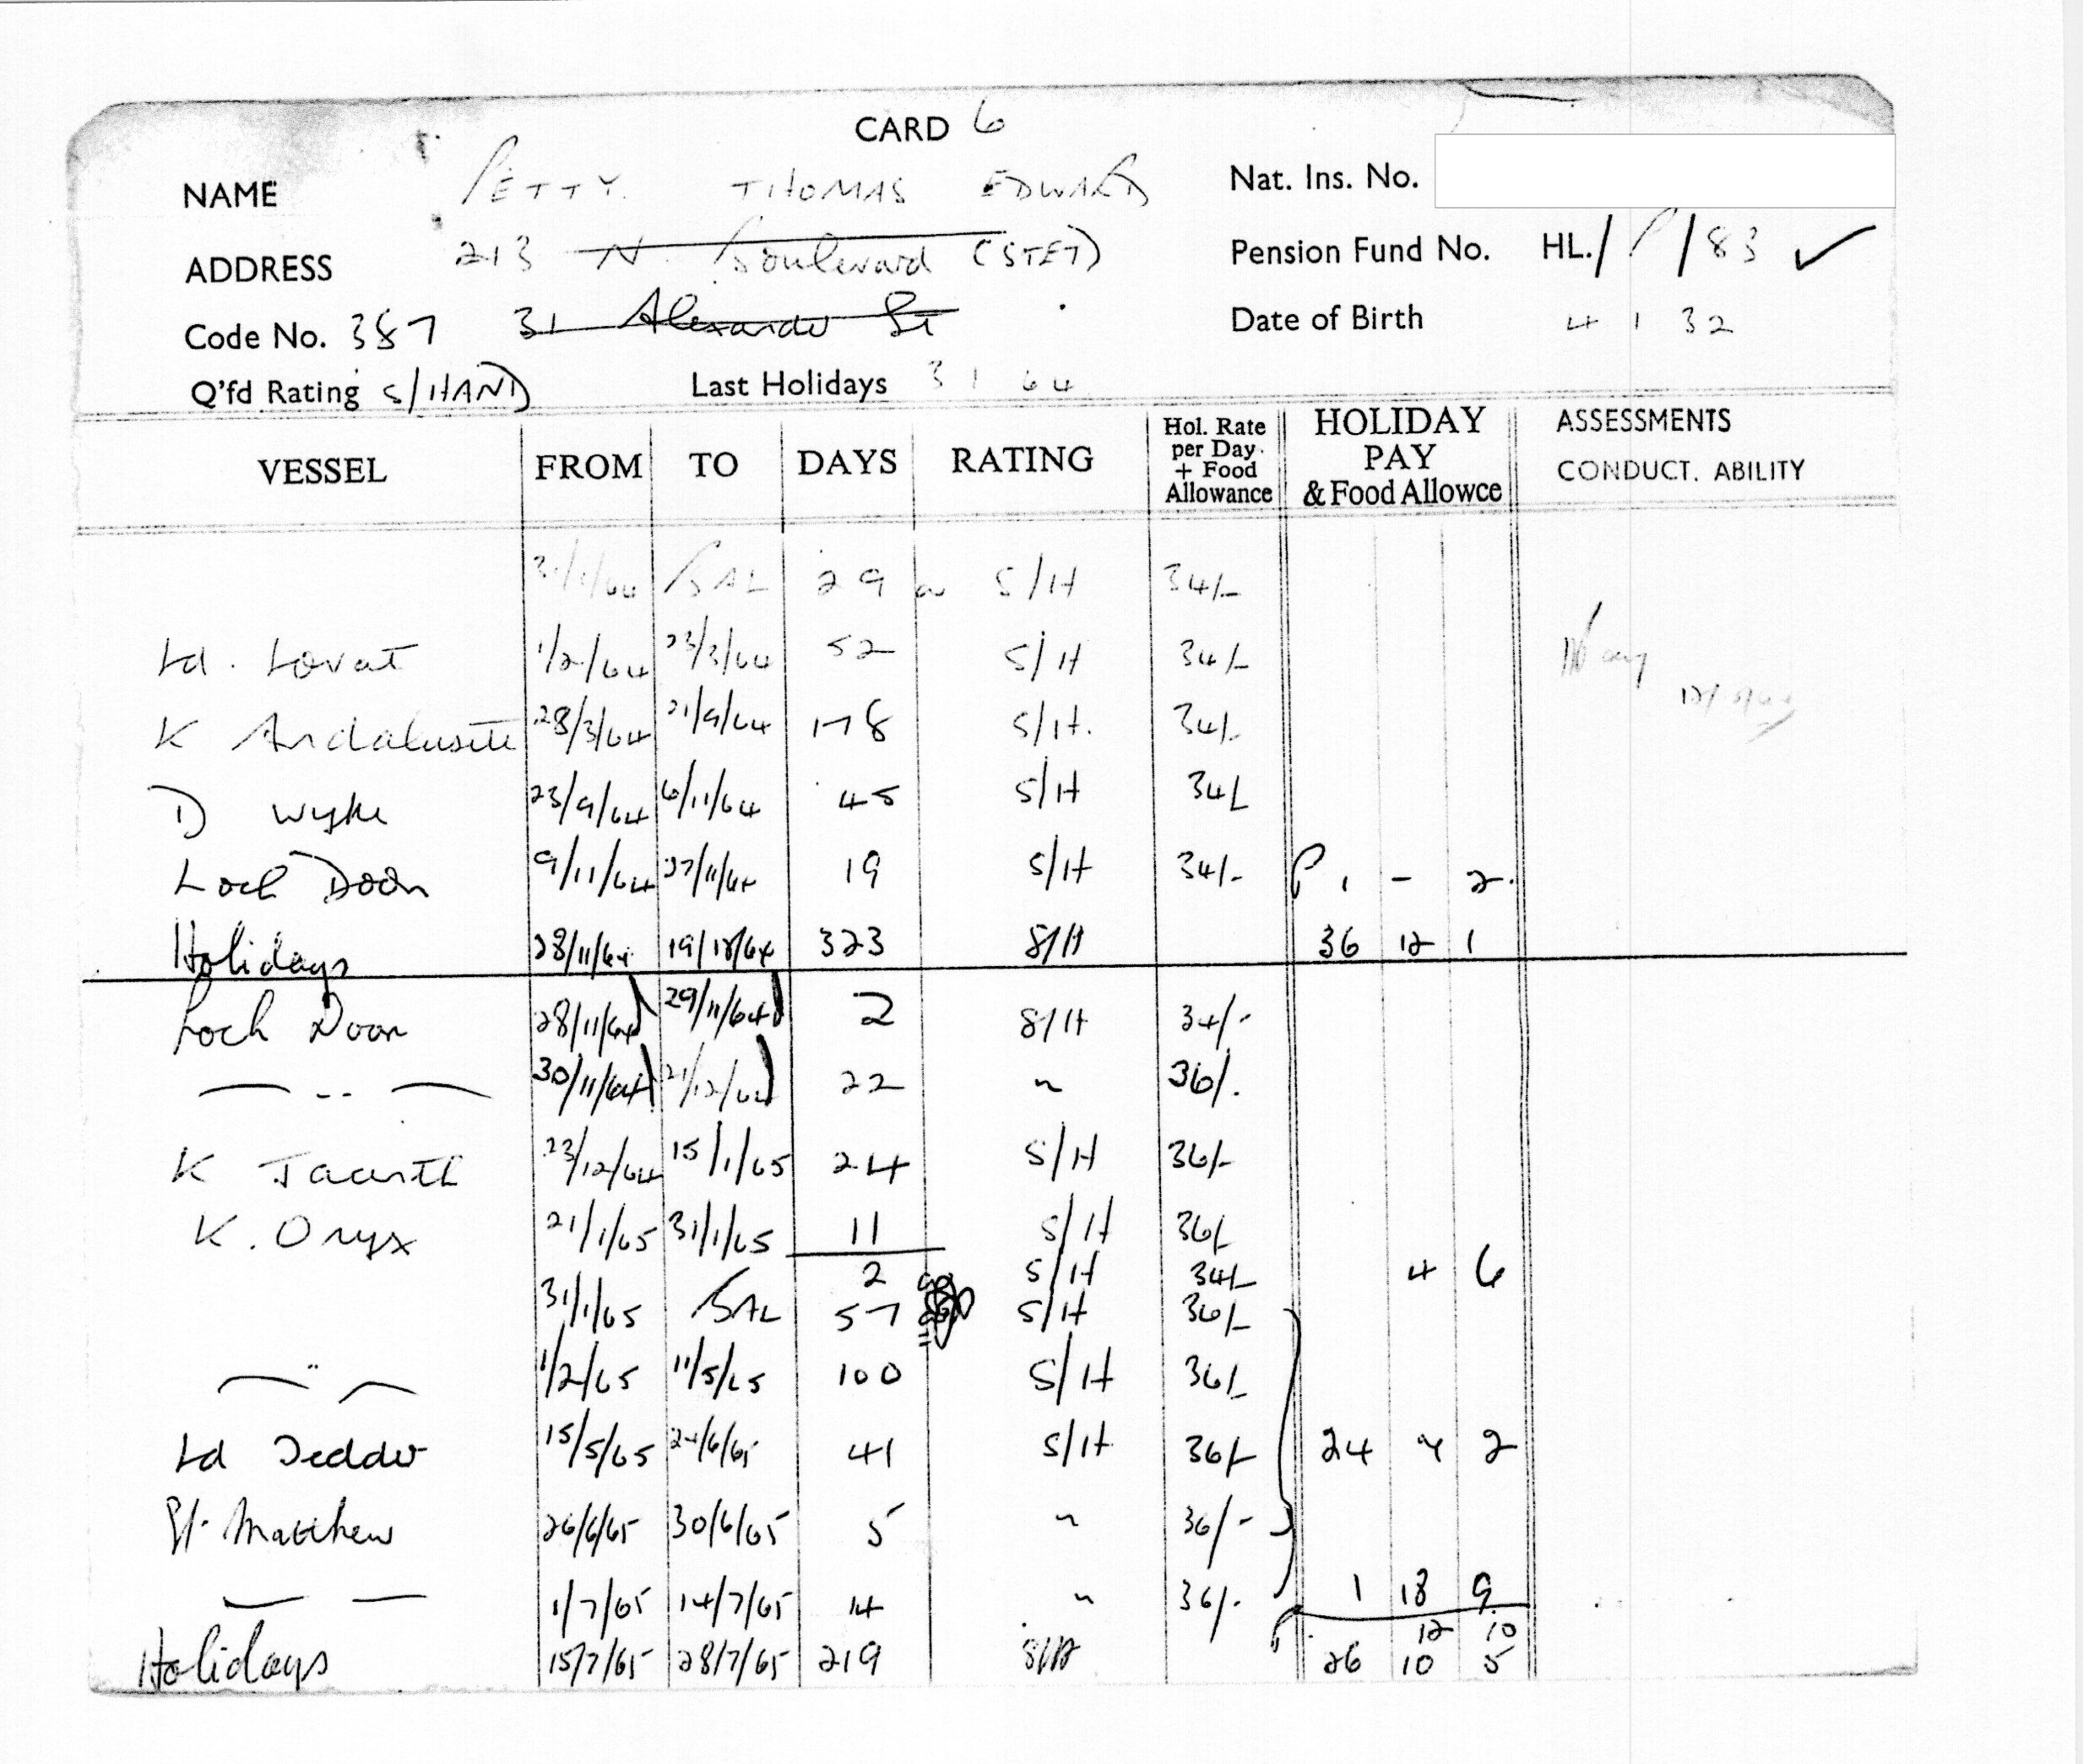 CARD 6
NAME PETTY THOMAS EDWARD Nat. Ins. No.
ADDRESS 213 N. Boulevard (STET) Pension Fund No. HL./P/83 ✓
Code No. 387 31 Alexander St Date of Birth 4 1 32
Q'fd Rating S/HAND Last Holidays 3 1 64
VESSEL FROM TO DAYS RATING Hol. Rate per Day + Food Allowance HOLIDAY PAY & Food Allowce ASSESSMENTS CONDUCT. ABILITY
31/1/64 BAL 29 S/H 34/-
Ld. Lovat 1/2/64 23/3/64 52 S/H 34/-
K Andalusite 28/3/64 21/9/64 178 S/H. 34/-
D Wyke 23/9/64 6/11/64 45 S/H 34/-
Loch Doon 9/11/64 27/11/64 19 S/H 34/- P 1 - 2.
Holidays 28/11/64 19/12/64 323 S/H 36 12 1
Loch Doon 28/11/64 29/11/64 2 S/H 34/-
— .. — 30/11/64 21/12/64 22 ~ 36/.
K Jacinth 23/12/64 15/1/65 24 S/H 36/-
K. Onyx 21/1/65 31/1/65 11 S/H 36/-
2 S/H 34/- 4 6
31/1/65 BAL 57 S/H 36/-
— .. — 1/2/65 11/5/65 100 S/H 36/-
Ld Tedder 15/5/65 24/6/65 41 S/H 36/- 24 2
St. Matthew 26/6/65 30/6/65 5 ~ 36/-
— — 1/7/65 14/7/65 14 ~ 36/. 1 18 9
12 10
Holidays 15/7/65 28/7/65 219 S/H 26 10 5